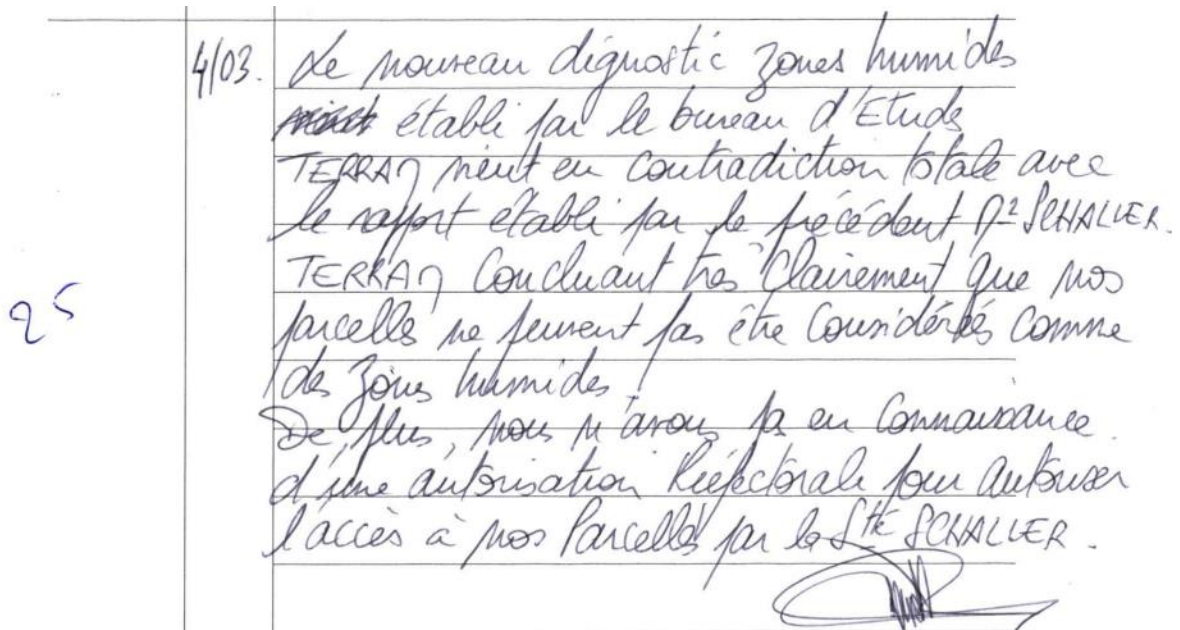 4/03. Le nouveau dignostic zones humides
établi par le bureau d'Etude
TERRAM vient en contradiction totale avec
le rapport établi par le précédent Mr SCHALLER.
TERRAM Concluant très Clairement que nos
parcelles ne peuvent pas être Considérées comme
25
des zones humides.
De plus, nous n'avons pas eu Connaissance
d'une autorisation Préfectorale pour autoriser
l'accès à nos Parcelles par la Sté SCHALLER.